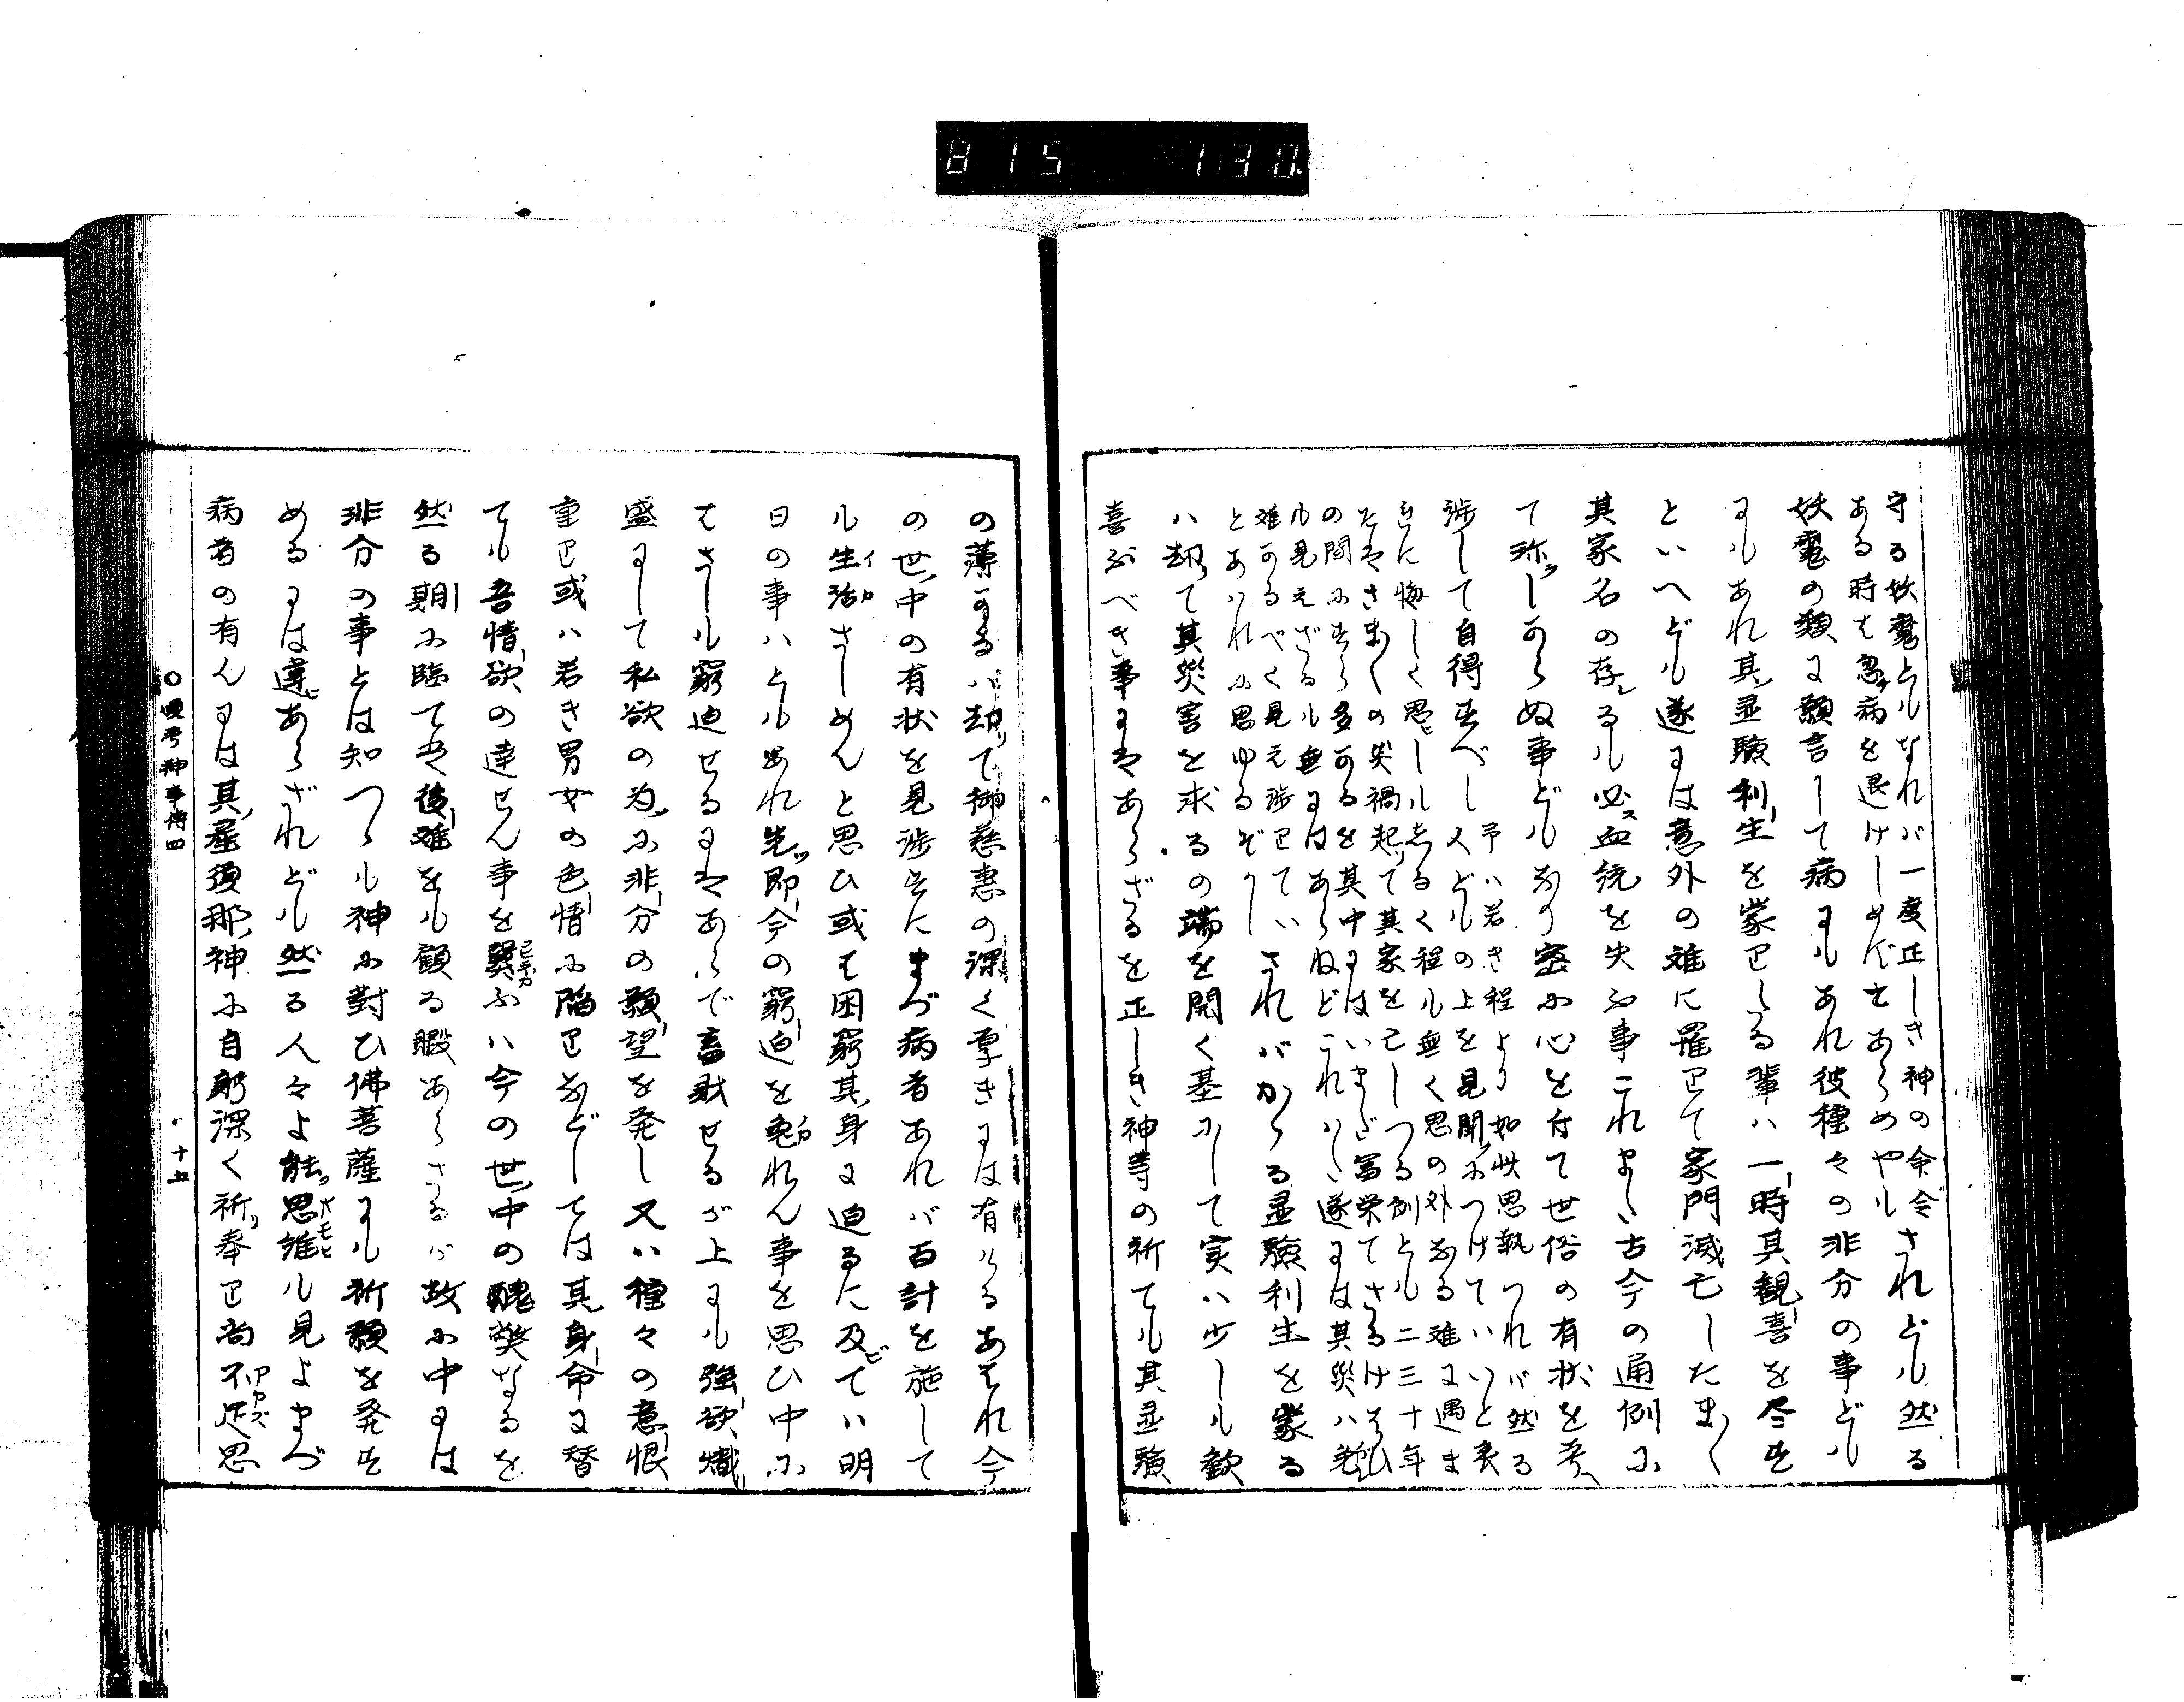 815 130
守る妖魔とルなれバ一度正しき神の命令
ある時は忽チ病を退けしめんであらめやル されどル然る
妖魔の類に願言して病ニルあれ彼種々の非分の事どル
にルあれ其霊験利生を蒙りたる輩ハ一時其観喜を尽す
といへどル遂には意外の難に罹りて家門滅亡したまく
其家名の存しるル必ス血統を失ふ事これまた古今の通例ふ
て珍ッしからぬ事どルなり密ふ心を付て世俗の有状を考へ
渉して自得すべし
予ハ若き程より如此思執つれバ然る
又どルの上を見聞ふつけていいと哀
きに悔しく思しルするく程ル無く思の外なる難に遇ま
たはさまくの災禍起ッて其家を亡しつる例とル二三十年
の間ふすら多かるを其中にはいまだ富栄てさるけはひ
ル見えざるル無にはあらねどこれハた遂には其災ハ免
難かるべく見え渉りてい
とあハれふ思ゆるぞかし
されバかゝる霊験利生を蒙る
ハ却て其災害を求るの端を開く基ふして実ハ少しル歓
喜ぶべき事にはあらざるを正しき神等の祈てル其霊験
の薄かるハ却ッて御慈恵の深く厚きには有けるあはれ今
の世ノ中の有状を見渉すにまづ病者あれバ百計を施して
ル生活イカさしめんと思ひ或は困窮其身に迫るに及ビてハ明
日の事ハとルあれ先ッ即今の窮迫を免カれん事を思ひ中ふ
はさしル窮迫せるにはあらで蓄財せるが上にル強欲熾
盛にして私欲の為ふ非分の願望を発し又ハ種々の意恨
事り或ハ若き男女の色情ふ陥りなどしては其身命に替
てル吾情欲の達せん事を冀ふハ今の世ノ中の醜弊なるを
然る期ふ臨てハ後難をル顧る暇あらさるが故ふ中には
非分の事とは知つゝル神ふ對ひ佛菩薩にル祈願を発す
めるには違ヒあらざれどル然る人々よ能ッ思惟オモヒル見よまづ
病者の有んには其産須那ノ神ふ自躬深く祈リ奉り尚不足アカズ思
神事傳四
十五